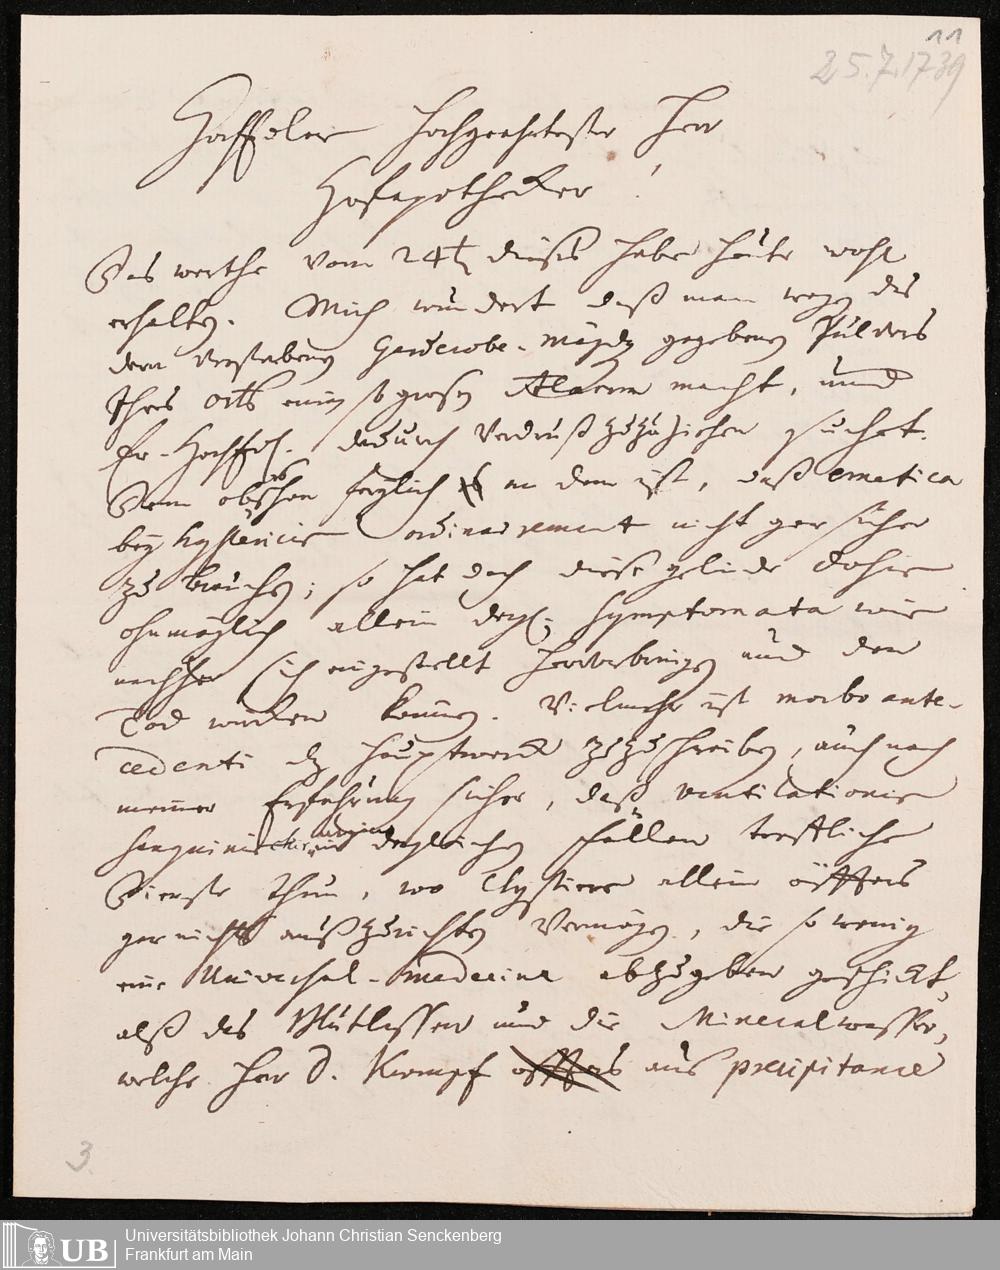 11
25.7.1739
HochEdler Hochgeehrtester Herr
Hofapothecker!
Das werthe vom 24t dieses habe heute wohl
erhalten. Mich wundert daß man wegen des
dem verstorbenen Garderobe-mägdg gegebenen Pulvers
Ihres orts einen so großen Allarm macht, und
Er-Hochfl. dadurch Verdruß zuzuziehen suchet.
Denn obschon es freylich an dem ist, daß emetica
bey hystericis ordinairement nicht gar sicher
zu brauchen; so hat doch diese gelinde dosis
ohnmöglich allein dergl. Symptomata wie
nachher sich eingestellt hervorbringen und den
Tod wircken können. Vielmehr ist morbo ante-
cedenti dz hauptwerck zuzuschreiben, auch nach
meiner Erfahrung sicher, daß ventilationes
sanguinis in dergleichen fällen treffliche
Dienste thun, wo Clystiere allein öffters
gar nichts außzurichten vermögen, die so wenig
eine Universal-Medecine abzugeben geschickt,
alß das Blutlassen und die Mineralwasser,
welche Herr D. Kempf öffters aus precipitance
3.
UB Universitätsbibliothek Johann Christian Senckenberg
Frankfurt am Main